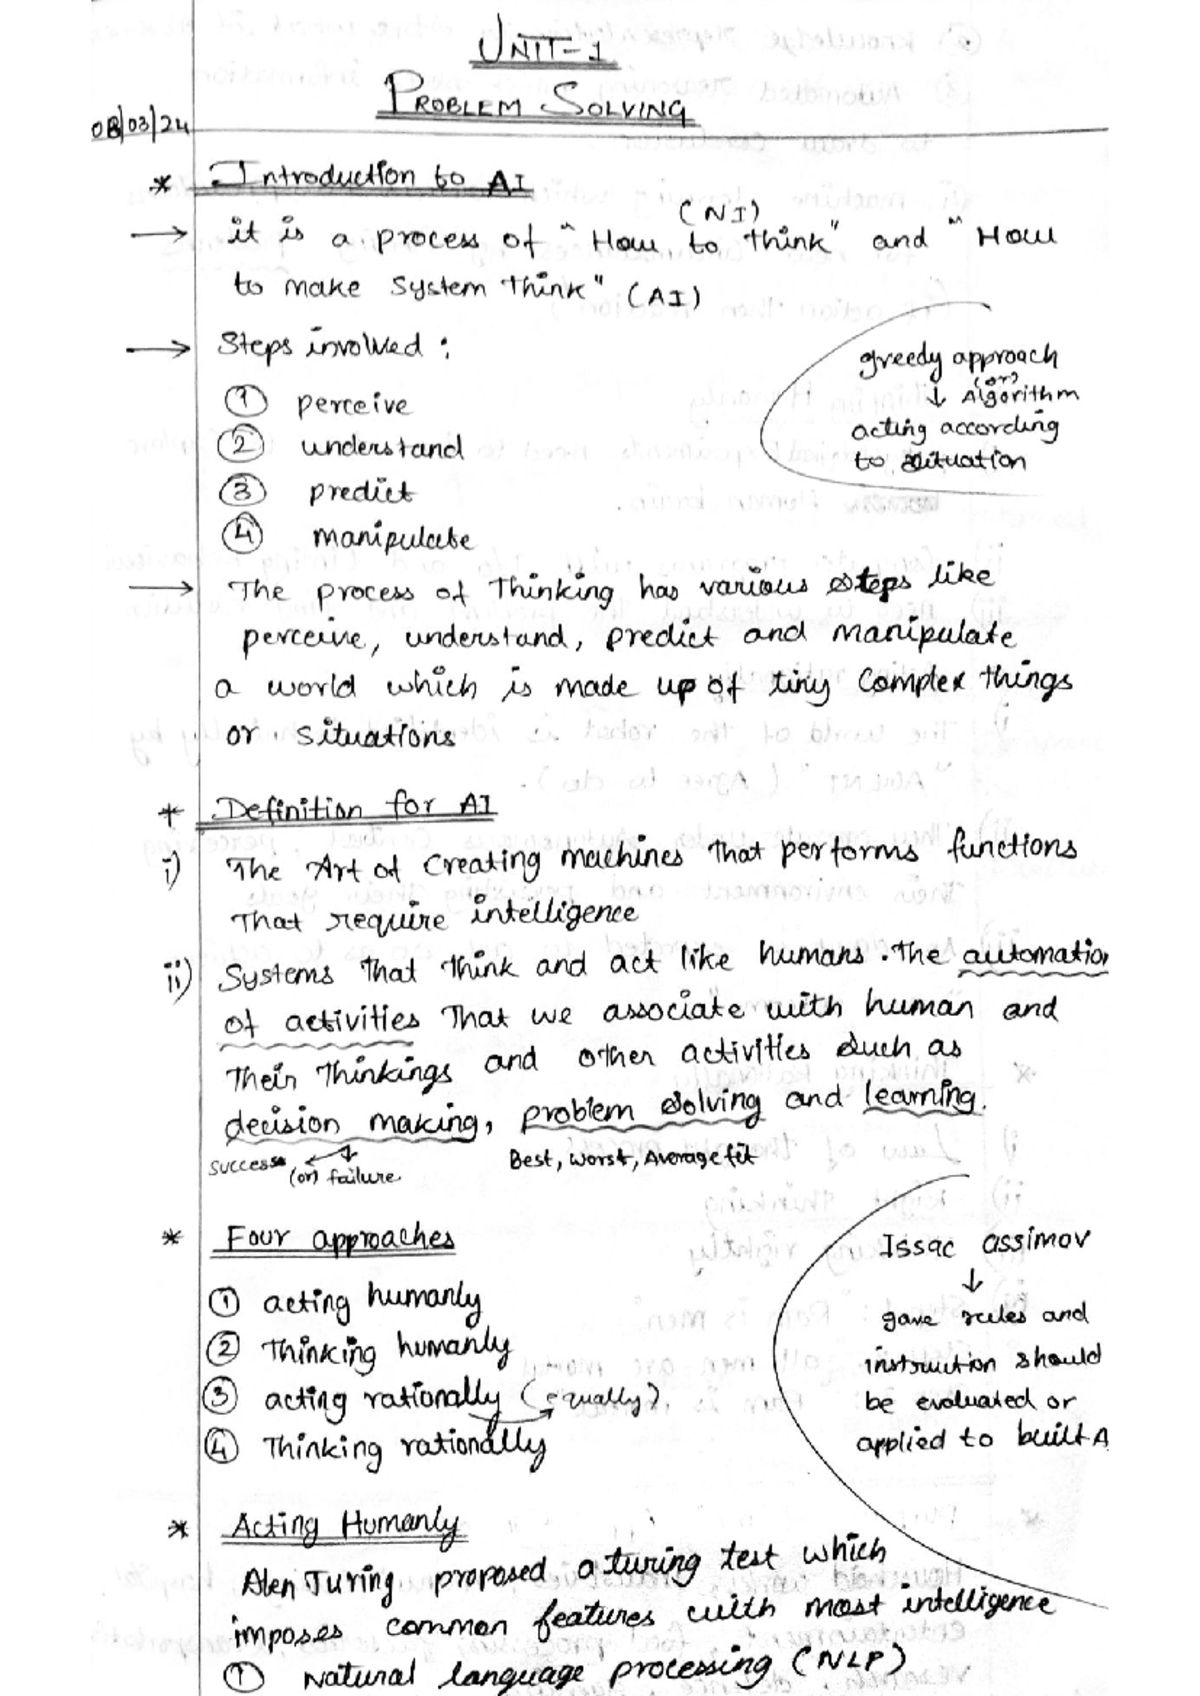 UNIT-1
PROBLEM SOLVING
08/03/24
* Introduction to AI
(NI)
→ it is a process of "How to think" and "How
to make system think" (AI)
→ Steps involved :
① perceive
② understand
③ predict
④ manipulate
greedy approach
(or)
↓ Algorithm
acting according
to situation
→ The process of Thinking has various steps like
perceive, understand, predict and manipulate
a world which is made up of tiny complex things
or situations
* Definition for AI
i) The Art of Creating machines that performs functions
that require intelligence
ii) Systems that think and act like humans. The automation
of activities that we associate with human and
their thinkings and other activities such as
decision making, problem solving and learning.
success (or) failure
Best, worst, Average fit
* Four approaches
① acting humanly
② Thinking humanly
③ acting rationally (equally)
④ Thinking rationally
Issac assimov
↓
gave rules and
instruction should
be evaluated or
applied to built A
* Acting Humanly
Alen Turing proposed a turing test which
imposes common features with most intelligence
① Natural language processing (NLP)